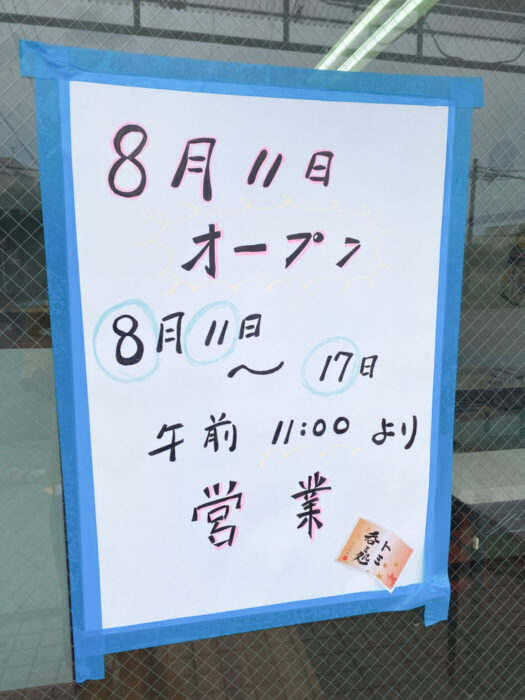 8月11日
オープン
8月11日
～17日
午前 11:00 より
営業
呑み処
トミ